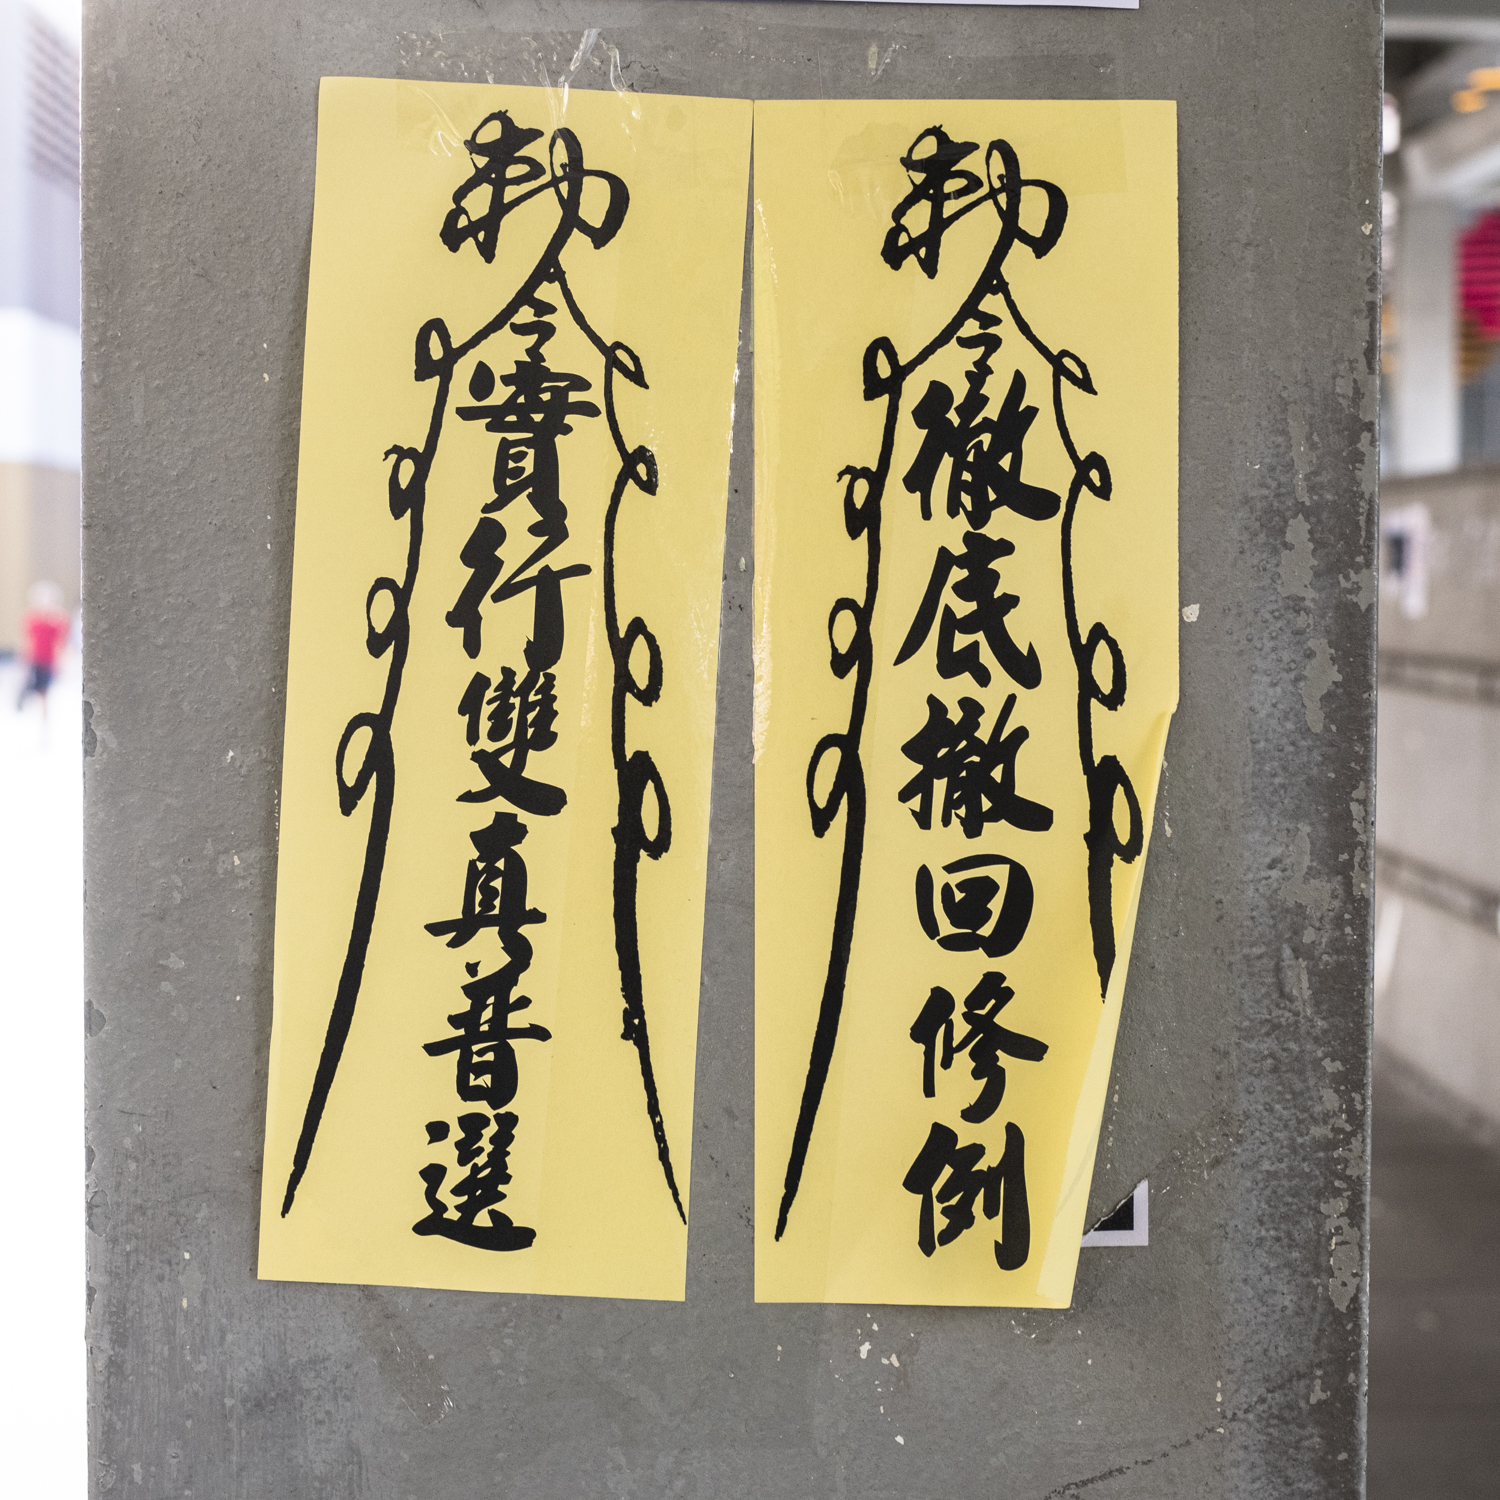 勅令徹底撤回修例
勅令實行雙真普選